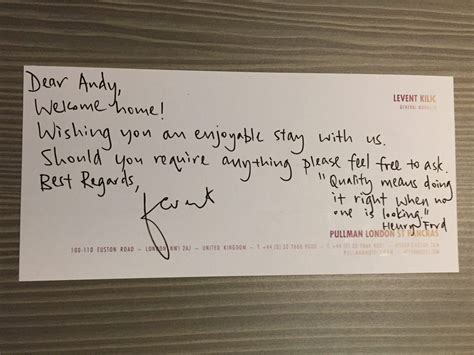 Dear Andy,
LEVENT KILIC
GENERAL MANAGER
Welcome home!
Wishing you an enjoyable stay with us.
Should you require anything please feel free to ask.
Best Regards,
"Quality means doing
it right when no
one is looking."
Henry Ford
Levent
PULLMAN LONDON ST PANCRAS
100-110 EUSTON ROAD – LONDON NW1 2AJ – UNITED KINGDOM – T +44 (0) 20 7666 9000